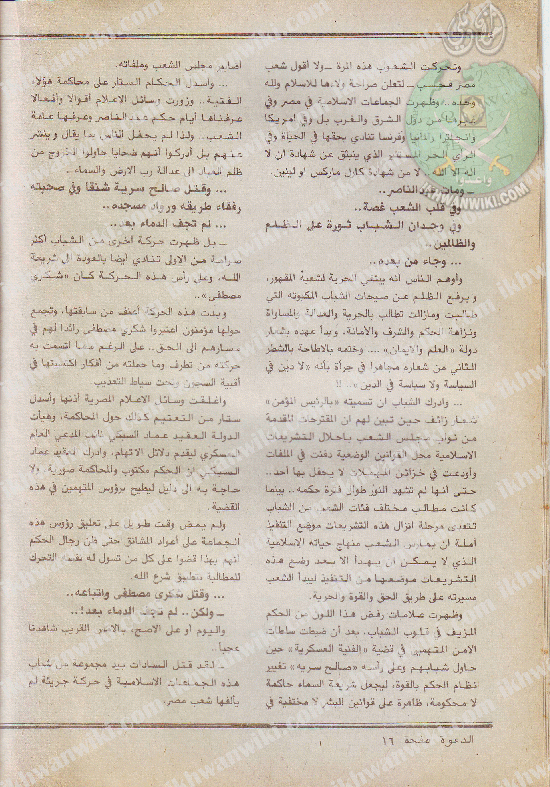 وتحركت الشعوب هذه المرة ــ ولا أقول شعب
مصر فحسب ــ لتعلن صراحة ولاءها للاسلام ولله
وحده .. وظهرت الجماعات الاسلامية في مصر وفي
غيرها من دول الشرق والغرب بل وفي امريكا
وانجلترا والمانيا وفرنسا تنادي بحقها في الحياة وفي
الرأي الحر المستقل الذي ينبثق عن شهادة ان لا
اله الا الله .. لا من شهادة كارل ماركس او لينين .
ــ ومات عبد الناصر ..
وفي قلب الشعب غصة ..
وفي وجدان الشباب ثورة على الظلم
والظالمين ..
... وجاء من بعده ..
وأوهم الناس انه يبتغي الحرية لشعبه المقهور،
ويرفع الظلم عن صيحات الشباب المكبوته التي
طالبت ومازالت تطالب بالحرية والعدالة والمساواة
ونزاهة الحكم والشرف والأمانة، وبدأ عهده بشعار
دولة «العلم والايمان» .... وختمه بالاطاحة بالشطر
الثاني من شعاره مجاهرا في جرأة بأنه «لا دين في
السياسة ولا سياسة في الدين » .. !!
... وادرك الشباب ان تسميته «بالرئيس المؤمن»
شعار زائف حين تبين لهم ان المقترحات المقدمة
من نواب مجلس الشعب باحلال التشريعات
الاسلامية محل القوانين الوضعية دفنت في الملفات
وأودعت في خزائن المهملات لا يحفل بها أحد ..
حتى أنها لم تشهد النور طوال فترة حكمه .. بينما
كانت مطالب مختلف فئات الشعب من الشباب
تتعدى مرحلة انزال هذه التشريعات موضع التنفيذ
أملة ان يمارس الشعب منهاج حياته الاسلامية
الذي لا يمكن ان يبدأ الا بعد وضع هذه
التشريعات موضعها من التنفيذ ليبدأ الشعب
مسيرته على طريق الحق والقوة والحرية .
وظهرت علامات رفض هذا اللون من الحكم
المزيف في قلوب الشباب، بعد أن ضبطت سلطات
الامن المتهمين في قضية «الفنية العسكرية» حين
حاول شبابهم وعلى رأسه «صالح سريه» تغيير
نظام الحكم بالقوة، ليجعل شريعة السماء حاكمة
لا محكومة، ظاهرة على قوانين البشر لا مختفية في
أضابير مجلس الشعب وملفاته .
... وأسدل الحكام الستار على محاكمة هؤلاء
الفتية .. وزورت وسائل الاعلام أقوالا وأفعالا
عرفناها أيام حكم عبد الناصر وعرفها عامة
الشعب .. ولذا لم يحفل الناس بما يقال وينشر
عنهم بل أدركوا أنهم ضحايا حاولوا الخروج من
ظلم العباد الى عدالة رب الارض والسماء ..
... وقتل صالح سرية شنقا وفي صحبته
رفقاء طريقه ورواد مسجده ..
... لم تجف الدماء بعد ..
ــ بل ظهرت حركة أخرى من الشباب أكثر
صرامة من الاولى تنادي أيضا بالعودة الى شريعة
الله، وعلى رأس هذه الحركة كان «شكري
مصطفى» ..
وبدت هذه الحركة أعنف من سابقتها، وتجمع
حولها مؤمنون اعتبروا شكري مصطفى رائدا لهم في
مسارهم الى الحق .. على الرغم مما اتسمت به
حركته من تطرف وما حملته من أفكار اكتسبتها في
أقبية السجون وتحت سياط التعذيب .
وأغلقت وسائل الاعلام المصرية أذنها وأسدل
ستار من التعتيم كذلك حول المحاكمة، وهيأت
الدولة العقيد عماد السبكي نائب المدعي العام
العسكري ليقدم دلائل الاتهام، وأدرك العقيد عماد
السبكي ان الحكم مكتوب والمحاكمة صورية ولا
حاجة به الى دليل ليطيح برؤوس المتهمين في هذه
القضية
ولم يمض وقت طويل على تعليق رؤوس هذه
الجماعة على أعواد المشانق حتى ظن رجال الحكم
أنهم بهذا قضوا على كل من تسول له نفسه التحرك
للمطالبة بتطبيق شرع الله .
... وقتل شكري مصطفى واتباعه ..
ــ ولكن .. لم تجف الدماء بعد ! ..
واليوم أو على الاصح، بالامس القريب شاهدنا
عجبا ..
ــ لقد قتل السادات بيد مجموعة من شباب
هذه الجماعات الاسلامية في حركة جريئة لم
يألفها شعب مصر .
الدعوة صفحة ١٦
ikhwanwiki.com